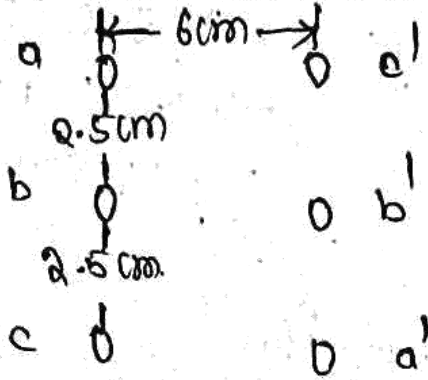 6cm
a c'
2.5cm
b b'
2.5cm.
c a'